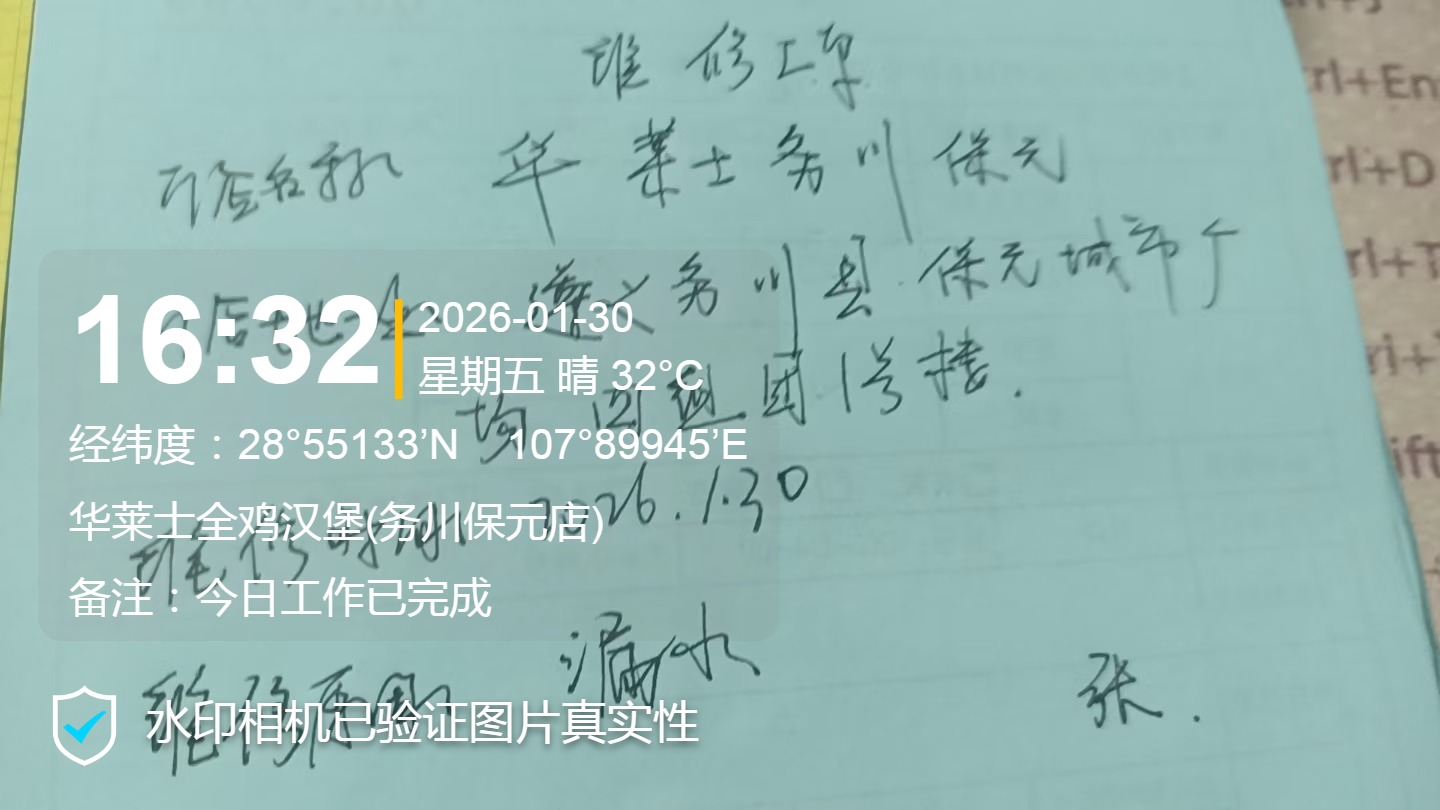 维修工单
门店名称 华莱士务川保元
门店地址 遵义务川县保元城市广
场 四通团1号楼.
维修时间 2026.1.30
维修原因 漏水
张.
16:32
2026-01-30
星期五 晴 32°C
经纬度：28°55133’N 107°89945’E
华莱士全鸡汉堡(务川保元店)
备注：今日工作已完成
水印相机已验证图片真实性
rl+En
rl+D
rl+T
ift